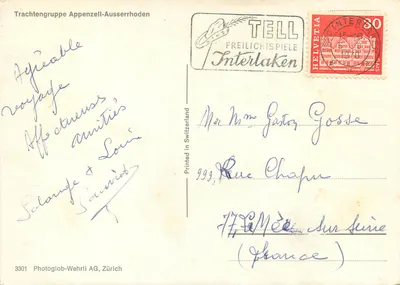 Trachtengruppe Appenzell-Ausserrhoden
TELL
FREILICHTSPIELE
Interlaken
HELVETIA
30
INTERLAKEN
Agréable
voyage
Affectueuses
amitiés
Solange & Louis
Printed in Switzerland
Mr Mme Gaston Gosse
999, Rue Chapu
77, Le Mée sur Seine
(France)
3301 Photoglob-Wehrli AG, Zürich